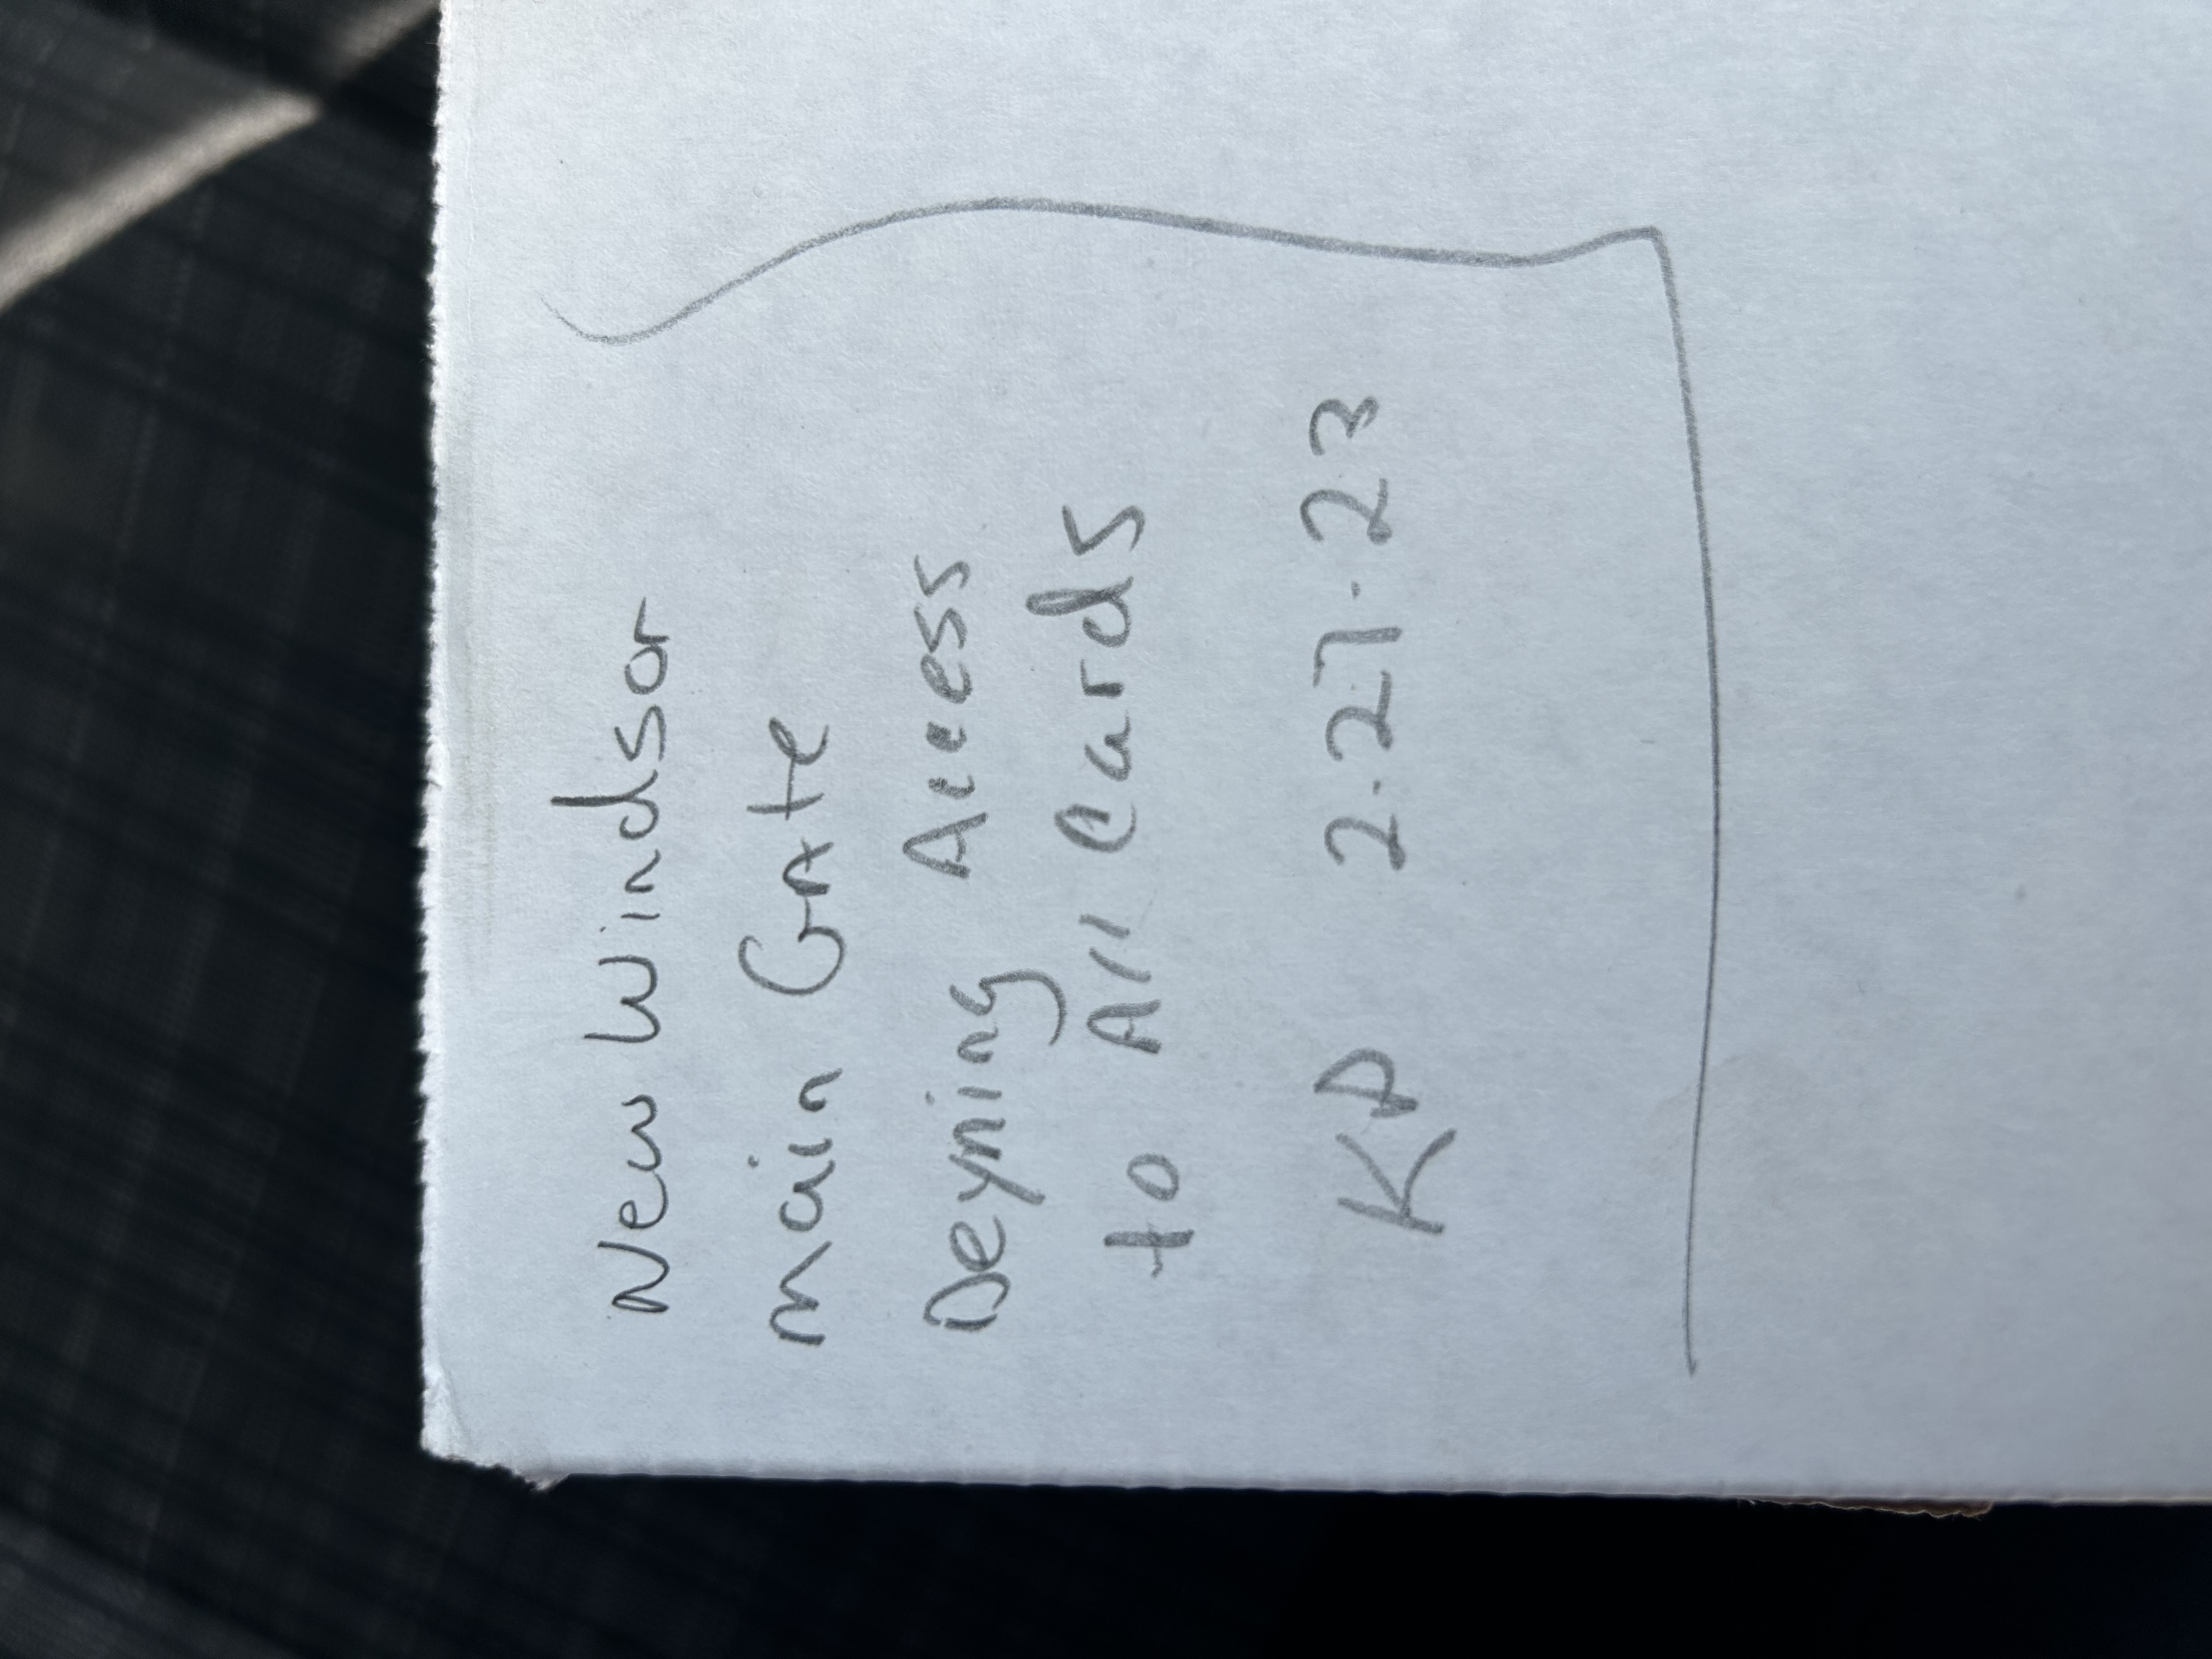 New Windsor
main Gate
Deyning Access
to All Cards
KD 2.27.23